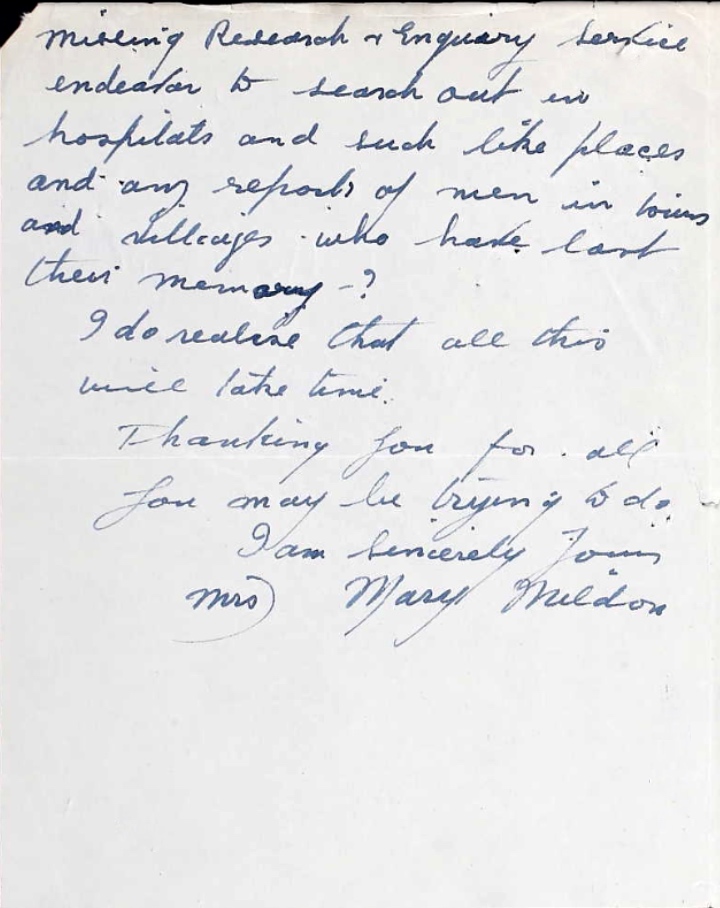 Missing Research & Enquiry Service
endeavor to search out in
hospitals and such like places
and any reports of men in towns
and villages who have lost
their memory -?
I do realise that all this
will take time.
Thanking you for all
you may be trying to do
I am sincerely yours
Mrs) Mary Meldon